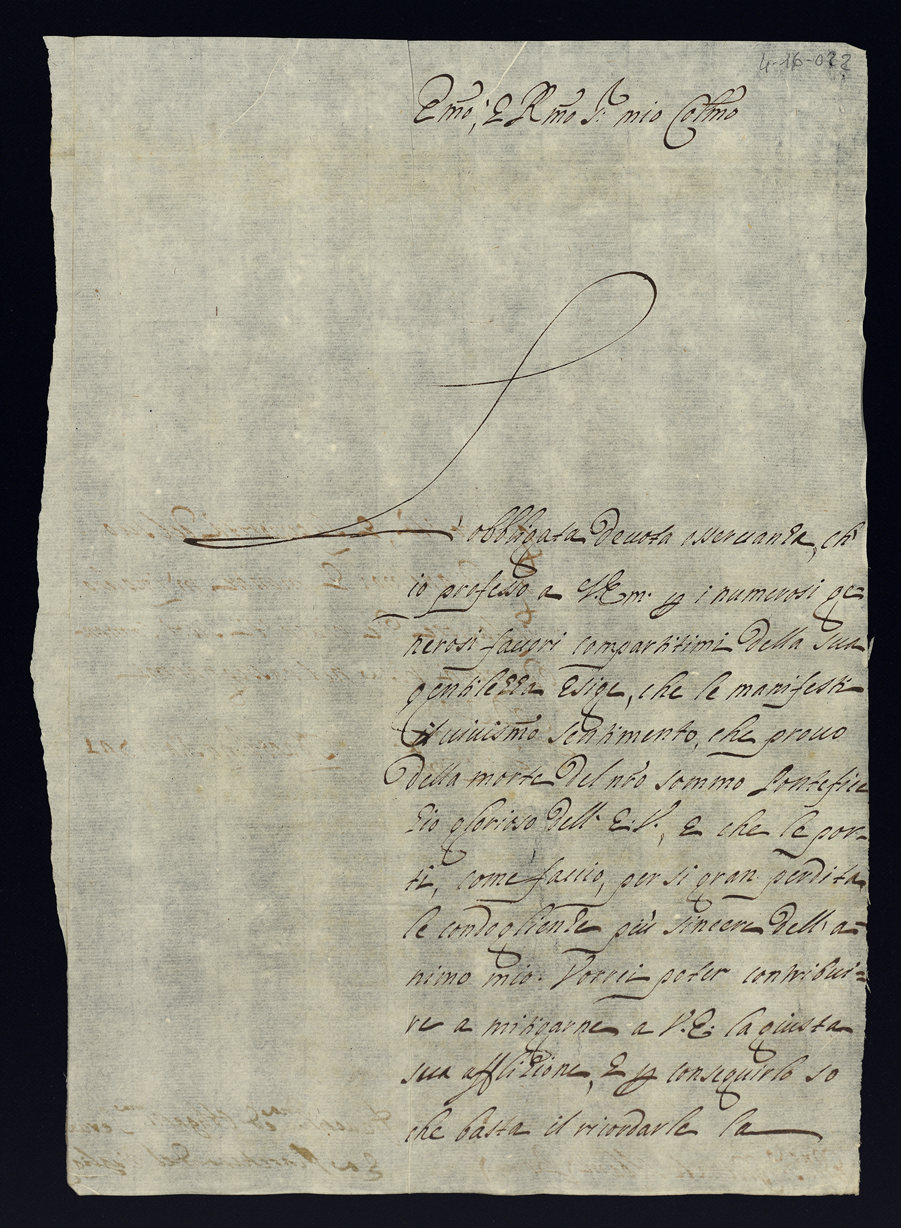 4-16-022
Emo, E Rmo Sr: mio Colmo
L' obbligata deuota osseruanza, ch'
io professo a V Em: p i numerosi ge=
nerosi fauori compartitimi della sua
gentilezza esige, che le manifesti
il uiuismo sentimento, che prouo
della morte del nro sommo Pontefice
Zio glorioso dell' E: V:, e che le por=
ti, come faccio, per si gran perdita
le condoglienze più sincere dell' a=
nimo mio. Vorrei poter contribui=
re a mitigarne a V. E: la giusta
sua afflizione, e p conseguirlo so
che basta il ricordarle la